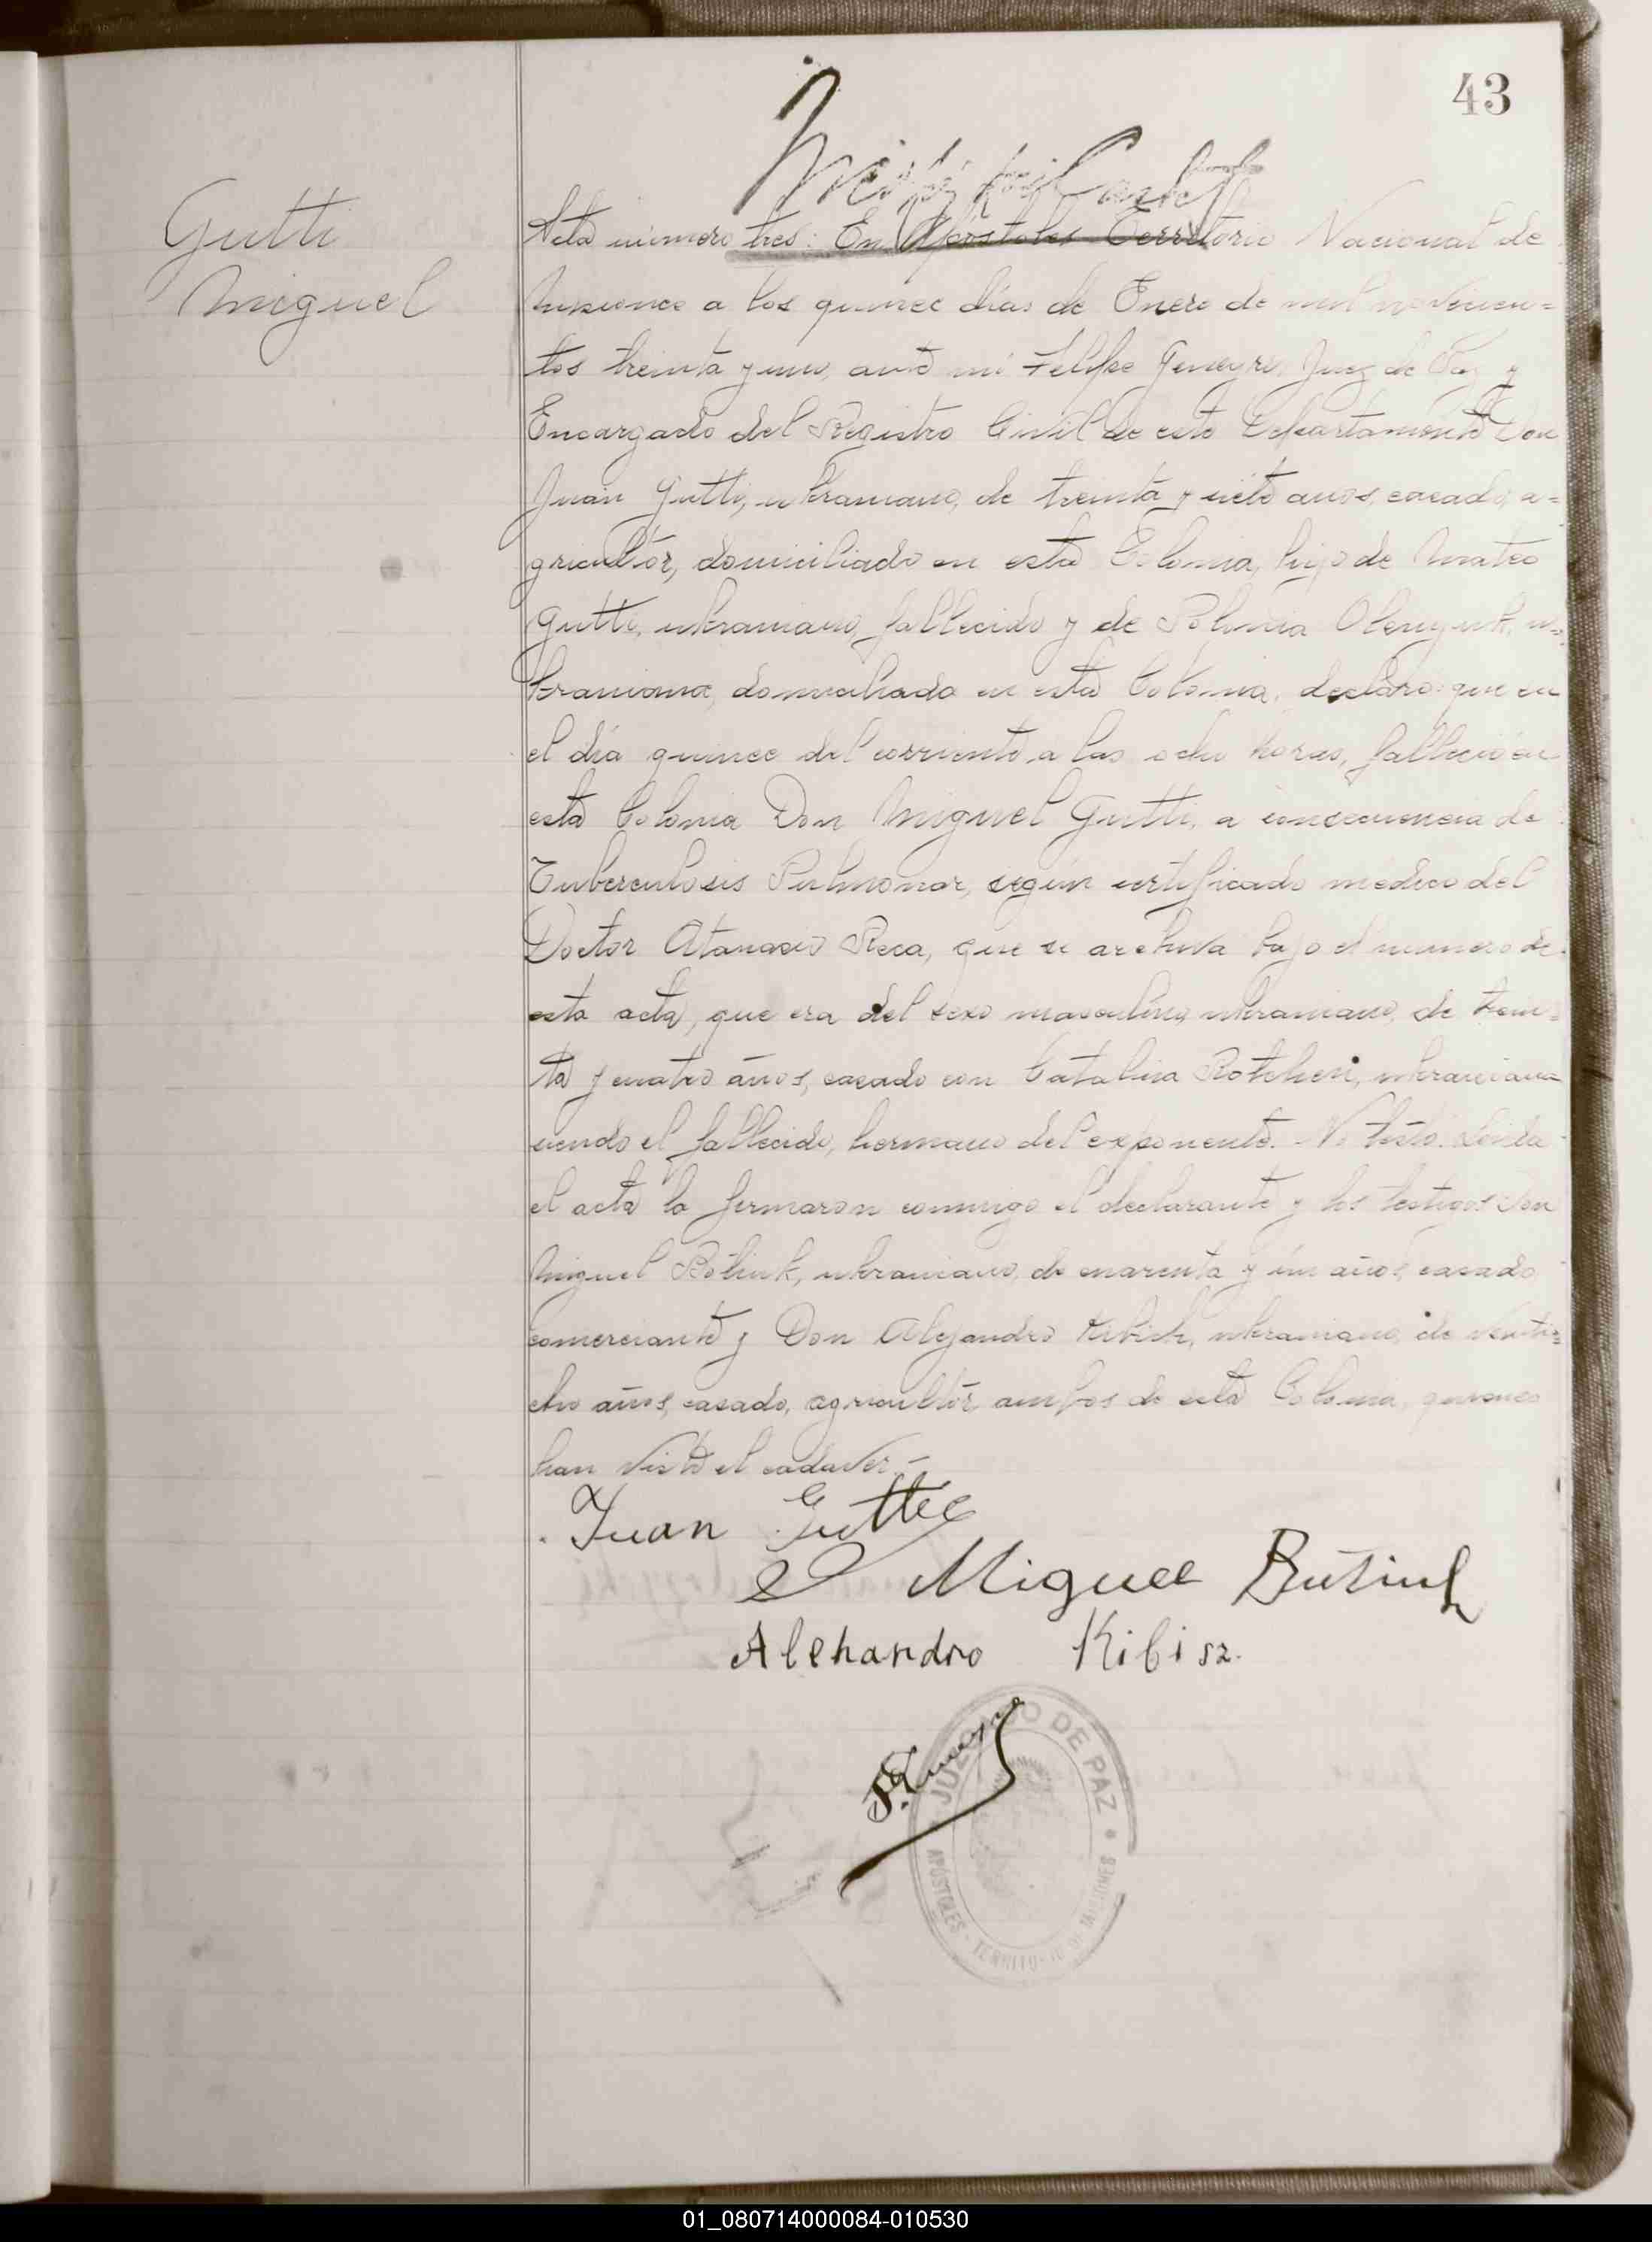 43
Gutti
Miguel
Acta número tres: En Apóstoles Territorio Nacional de
Misiones a los quince días de Enero de mil novecien=
tos treinta y uno, ante mi Felipe Juez de Paz y
Encargado del Registro Civil de este Departamento Don
Juan Gutti, ukraniano, de treinta y siete años, casado, a=
gricultór, domiciliado en esta Colonia, hijo de Mateo
Gutti, ukraniano, fallecido y de Polonia u=
kraniana, domiciliada en esta Colonia, declaro: que en
el día quince del corriente, a las ocho horas, falleció en
esta Colonia Don Miguel Gutti, a consecuencia de
Tuberculosis Pulmonar, según certificado médico del
Doctor Atanacio Reca, que se archiva bajo el número de
esta acta, que era del sexo masculino, ukraniano, de trein=
ta y cuatro años, casado con Catalina ukraniana
siendo el fallecido, hermano del exponente. No testó. Leida
el acta la firmaron conmigo el declarante y los testigos Don
Miguel ukraniano, de cuarenta y ún años, casado,
comerciante y Don Alejandro Kibich, ukraniano, de ventio=
cho años, casado, agricultór ambos de esta Colonia, quienes
han visto el cadaver.-
Juan Guttee
Miguel
Alehandro Kibisz.
JUZGADO DE PAZ
APÓSTOLES - TERRITORIO DE MISIONES
01_080714000084-010530